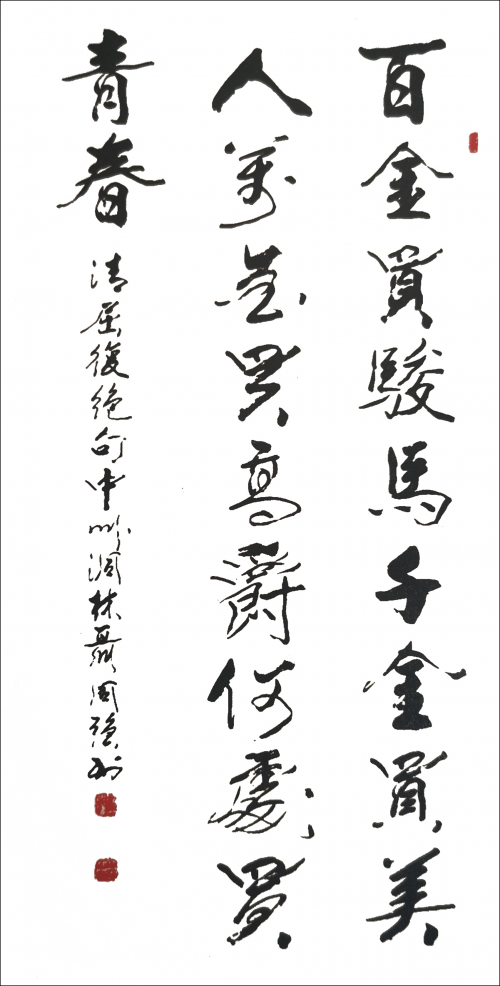 百金買駿馬千金買美
人萬金買高爵何處買
青春
清屈復絕句中州潤林聶周強书